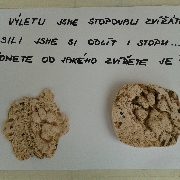 VÝLETU JSME STOPOVALI ZVÍŘÁT
SILI JSME SI ODLÍT I STOPU...
DNETE OD JAKÉHO ZVÍŘETE JE ?